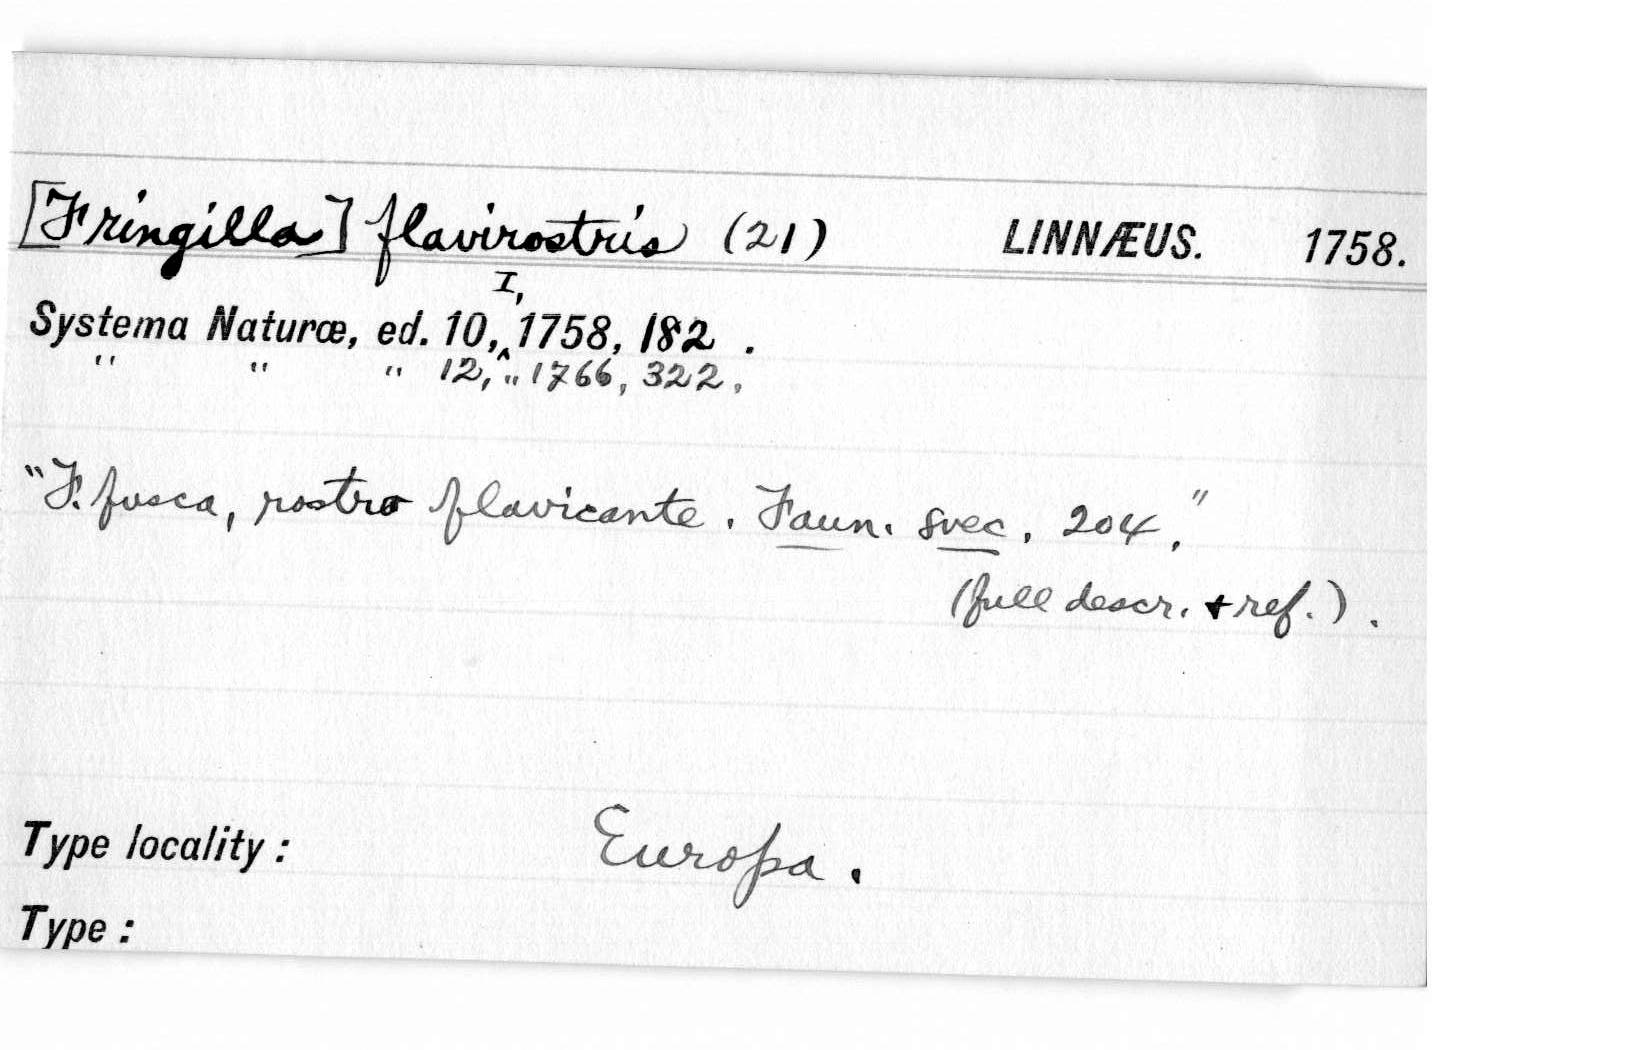 [Fringilla] flavirostris (21) LINNÆUS. 1758.
I,
Systema Naturæ, ed. 10,^ 1758, 182 .
" " " 12, " 1766, 322.
"F. fusca, rostro flavicante. Faun. svec. 204."
(full descr. + ref.).
Type locality: Europa.
Type: